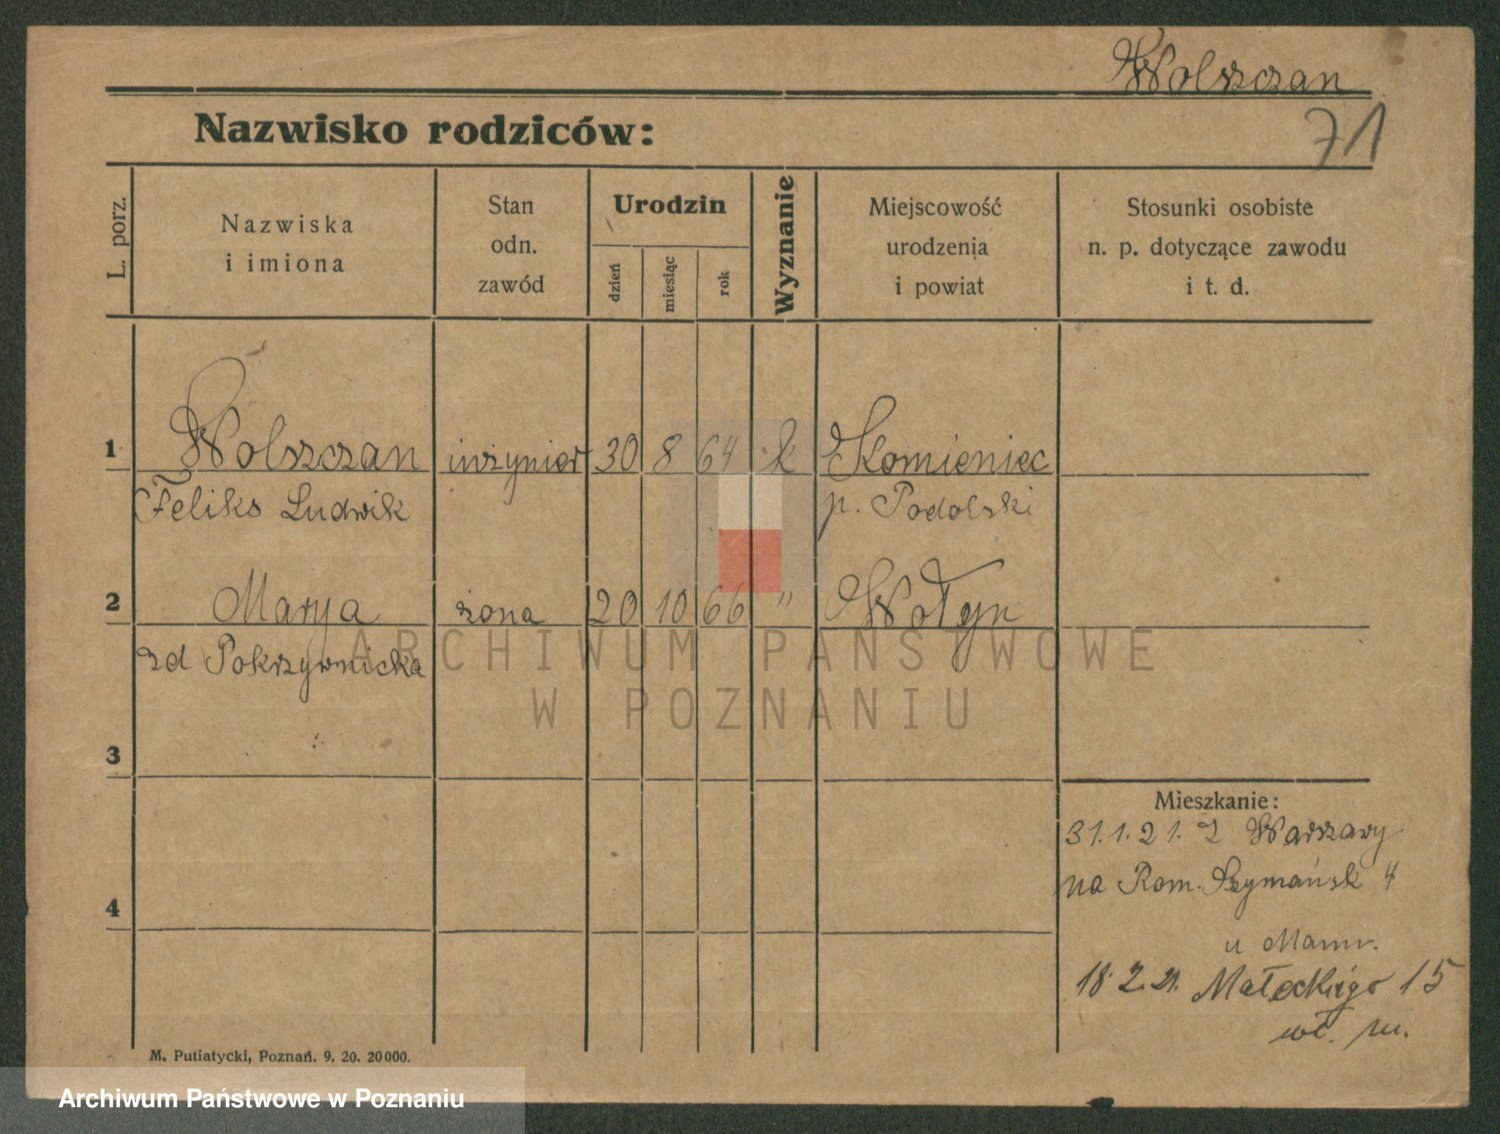 Wolszczan
71
Nazwisko rodziców:
L. porz.
Nazwiska
i imiona
Stan
odn.
zawód
Urodzin
dzień
miesiąc
rok
Wyznanie
Miejscowość
urodzenia
i powiat
Stosunki osobiste
n. p. dotyczące zawodu
i t. d.
1 Wolszczan inżynier 30 8 64 k Kamieniec
Feliks Ludwik p. Podolski
2 Marya żona 20 10 66 " Wołyn
zd Pokrzywnicka
ARCHIWUM PAŃSTWOWE
W POZNANIU
3
4
Mieszkanie:
31.1.21. Z Warszawy
na Rom. Szymańsk 4
u
18.2.21. Małeckiego 15
wł. m.
M. Putiatycki, Poznań. 9. 20. 20000.
Archiwum Państwowe w Poznaniu